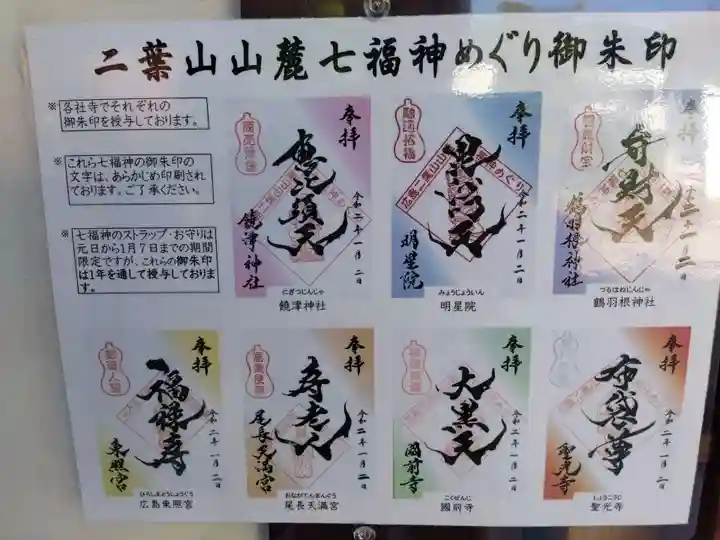 二葉山山麓七福神めぐり御朱印
※各社寺でそれぞれの
御朱印を授与しております。
※これら七福神の御朱印の
文字は、あらかじめ印刷され
ております。ご了承ください。
※七福神のストラップ・お守りは
元日から1月7日までの期間
限定ですが、これらの御朱印
は1年を通して授与しておりま
す。
奉拝
恵比須天
令和二年一月二日
饒津神社
にぎつじんじゃ
饒津神社
奉拝
毘沙門天
広島二葉山山
令和二年一月二日
明星院
みょうじょういん
明星院
奉拝
寿財天
令和二年一月二日
鶴羽根神社
つるはねじんじゃ
鶴羽根神社
奉拝
福禄寿
令和二年一月二日
東照宮
ひろしまとうしょうぐう
広島東照宮
奉拝
寿老人
令和二年一月二日
尾長天満宮
おながてんまんぐう
尾長天満宮
奉拝
大黒天
令和二年一月二日
國前寺
こくぜんじ
國前寺
奉拝
布袋尊
令和二年一月二日
聖光寺
しょうこうじ
聖光寺